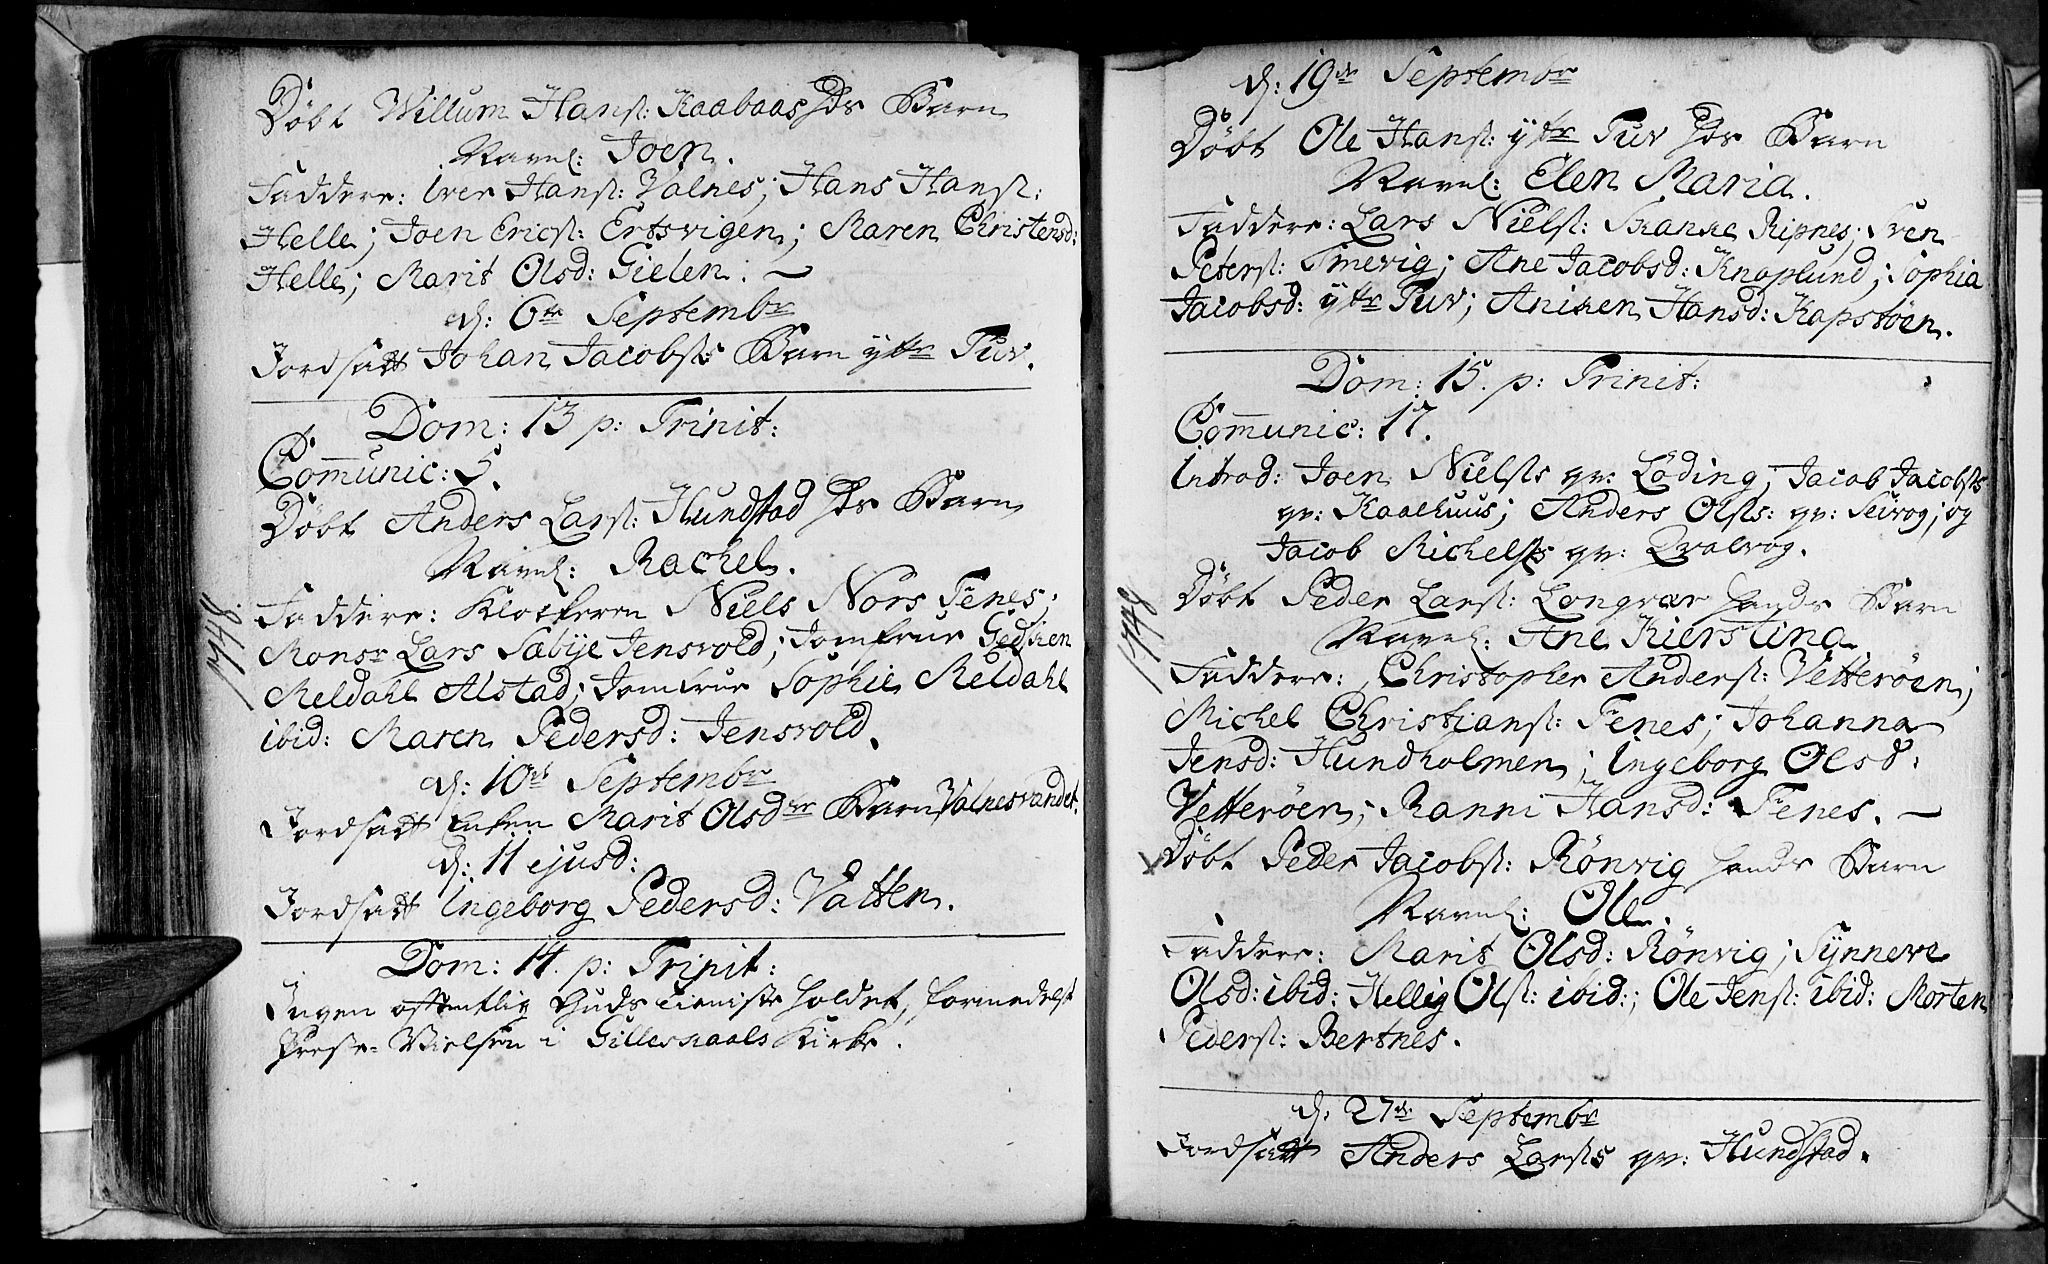 Döbt Willum Hans: Kaabaas hs Barn
Navnl: Joen.
Faddere: Iver Hans: Valnes; Hans Hans:
Helle; Joen Erics: Ertsvigen; Maren Christensd:
Helle; Marit Olsd: Gielen: —
d: 6te Septembr
Jordsatt Johan Jacobss Barn yttr Tuv.
Dom: 13 p: Trinit:
Com̄unic: 5.
Döbt Anders Lars: Hundstad hs Barn
Navnl: Rachel.
Faddere: Klockeren Niels Nors Fenes;
Monsr Lars Sæbye Jensvold; Jomfrue Gedsken
Meldahl Alstad; Jomfrue Sophie Meldahl
ibid: Maren Pedersd: Jensvold.
d: 10de Septembr
Jordsatt Enken Marit Olsdtr Barn Valnesvandet.
d: 11 ejusd:
Jordsatt Ingeborg Pedersd: Vatten.
Dom: 14. p: Trinit:
Ingen offentlig Guds tieniste holdet, formedelst
Prese- Vielsen i Gilleskaals Kirke.
1748.
d: 19de Septembr
Döbt Ole Hans: yttr Tuv hs Barn
Navnl: Elen Maria.
Faddere: Lars Niels: Skanke Ripnes; Sven
Peters: Tmevig; Ane Jacobsd: Knaplund; Sophia
Jacobsd: yttr Tuv; Aniken Hansd: Kapstöen.
Dom: 15. p: Trinit:
Com̄unic: 17.
Introd: Joen Nielss qv: Löding; Jacob Jacobss
qv: Kaalhuus; Anders Olss: qv: Seivog; og
Jacob Michelss qv: Qvalvog.
1748
Döbt Peder Lars: Longvær hands Barn
Navnl: Ane Kierstina
Faddere: Christopher Anders: Vetteröen;
Michel Christians: Fenes; Johanna
Jensd: Hundholmen; Ingeborg Olsd:
Vetteröen; Ranni Hansd: Fenes. —
Döbt Peder Jacobs: Rönvig hands Barn
Navnl: Ole.
Faddere: Marit Olsd: Rönvig; Synneve
Olsd: ibid: Hellig Ols: ibid:; Ole Jens: ibid: Morten
Peders: Bertnes.
d: 27de Septembr
Jordsatt Anders Larss qv: Hundstad.